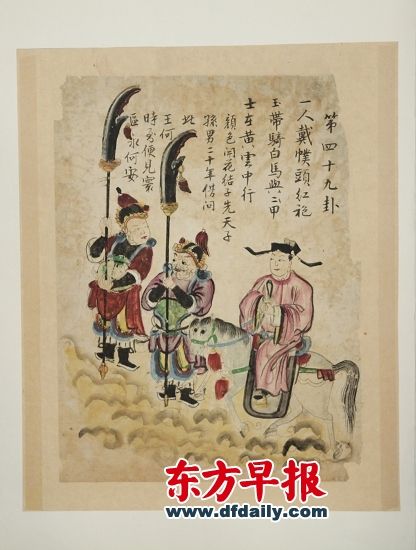 第四十九卦
一人戴幞頭紅袍
玉帶騎白馬與二甲
士在黃雲中行
顏色開花結子先天子
孫男二十年借問
此王何
時便見
何安
东方早报
www.dfdaily.com